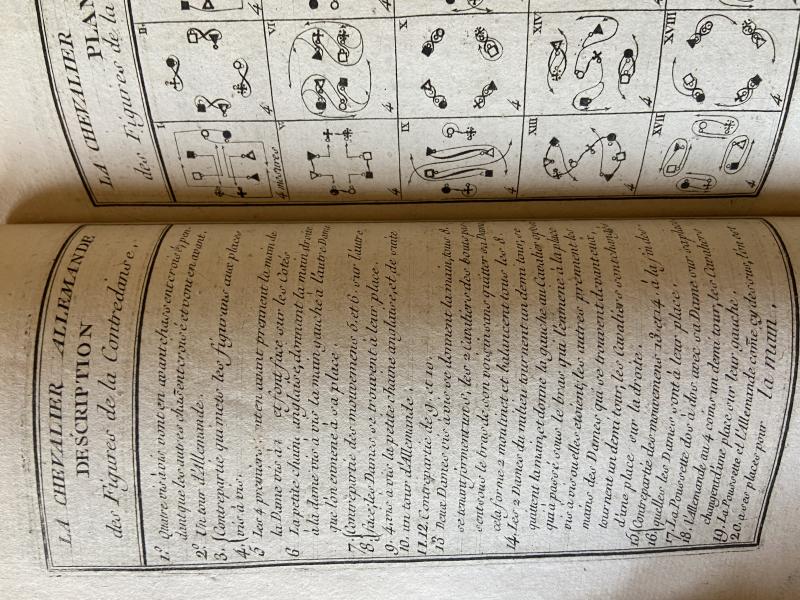 LA CHEVALIER ALLEMANDE
DESCRIPTION
des Figures de la Contredanse.
1.º Quatre vis à vis vont en avant chassent croisé,
dant que les autres chassent croisé et vont en avant.
2.º Un tour d'Allemande.
3. Contrepartie qui mets les figurans aux places
4. vis à vis.
5 Les 4 premiers en avant prennent la main de
la Dame vis à vis et font face sur les Cotés
6 La petite chaine anglaise, donnant la main droite
à la dame vis à vis la main gauche à l'autre Dame
que l'on ramene à sa place.
7. Contrepartie des mouvemens 5. et 6. sur l'autre
8. face, les Dames se trouvent à leur place.
9. 4 vis à vis la petite chaine anglaise, et de suite
10. un tour d'Allemande.
11. 12. Contrepartie de 9. et 10.
13 Deux Dames vis à vis se donnent la main, tous 8
se tenant forment un S, les 2 Cavaliers des bouts
sous le bras de son voisin sans quitter sa Dame
cela forme 2 moulinet et balancent tous les 8.
14. Les 2 Dames du milieu tournent un demi tour, se
quittent la main, et donne la gauche au Cavalier
qui a passé sous le bras qui l'emmene à la place
vis à vis qu'elles etoient, les autres prennent les
mains des Dames qui se trouvent devant eux,
tournent un demi tour, les Cavaliers sont changés
d'une place sur la droite.
15. Contrepartie des mouvemens 13. et 14. à la fin des
16. quelles les Dames sont à leur place.
17. La Poussette dos à dos avec sa Dame sur sa place
18. L'Allemande au 4 coins un demi tour, les Cavaliers
changent d'une place sur leur gauche.
19. La Poussette et L'Allemande come cy dessus, l'on est
20. à ses places pour la main.
LA CHEVALIER
PLAN
des Figures de la
I.
4 mesures
II.
4
V
4
VI
4
IX
4
X
4
XIII
4
XIV
4
XVII
4
XVIII
4